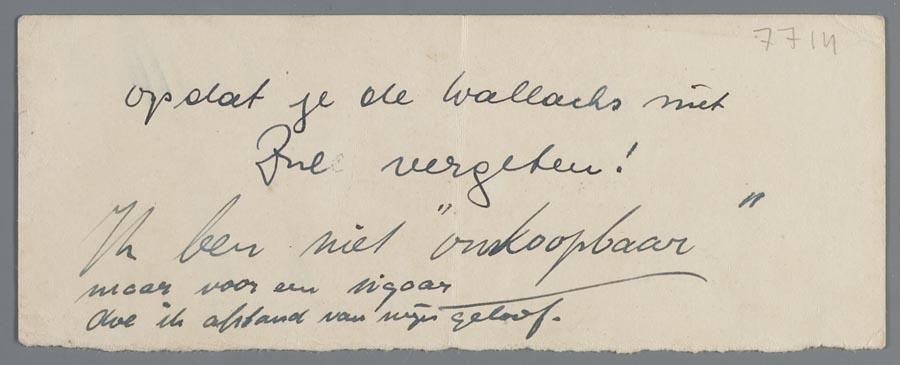 7714
opdat je de Wallachs niet
zul vergeten!
Ik ben niet "omkoopbaar"
maar voor een sigaar
doe ik afstand van mijn geloof.